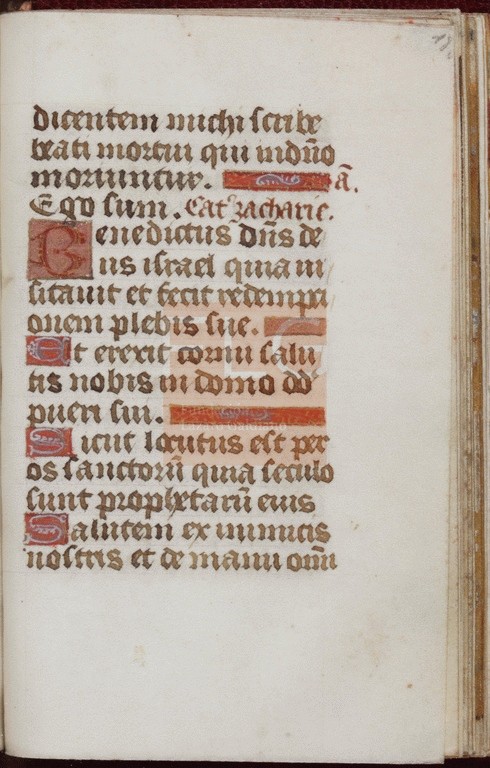 dicentem michi scribe
beati mortui qui in dño
moriuntur. ã.
Ego sum. Cat² zacharie.
Benedictus dñs de
us israel quia ui
sitauit et fecit redempti
onem plebis sue.
Et erexit cornu salu
tis nobis in domo dd
pueri sui.
Sicut locutus est per
os sanctorũ quia seculo
sunt prophetarũ eius
Salutem ex inimicis
nostris et de manu omĩ